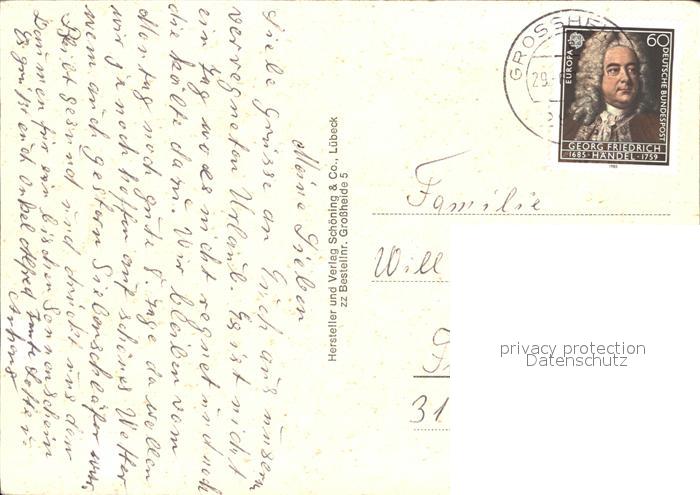 Meine Lieben
Liebe Grüsse an Euch aus unserm
verregneten Urlaub. Es ist nicht
ein Tag wo es nicht regnet und noch
die Kälte dazu. Wir bleiben vom
Montag noch gute 8. Tage da wollen
wir ja noch hoffen auf schönes Wetter
wenn auch gestern Siebenschläfer war,
Bleibt gesund und drückt uns den
Daumen für ein bischen Sonnenschein
Es grüsst Euch Onkel Alfred Tante Lotte u.
Anhang
Hersteller und Verlag Schöning & Co., Lübeck
zz Bestellnr. Großheide 5
GROSSHE
29.
EUROPA
60
DEUTSCHE BUNDESPOST
GEORG FRIEDRICH
1685 HÄNDEL · 1759
1985
Familie
Will
31
privacy protection
Datenschutz